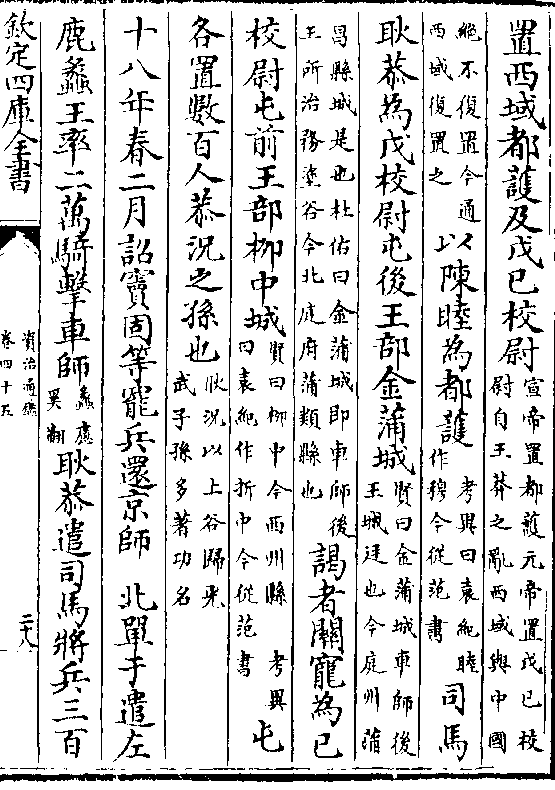 置西域都護及戊已校尉宣帝置都護元帝置戊已校尉自王莽之亂西域與中國
絶不復置今通西域復置之以陳睦為都護考異曰袁紀睦作穆今從范書司馬
耿恭為戊校尉屯後王部金蒲城賢曰金蒲城車師後王城廷也今庭州蒲
昌縣城是也杜佑曰金蒲城即車師後王所治務塗谷今北庭府蒲類縣也謁者關寵為已
校尉屯前王部柳中城賢曰柳中今西州縣考異曰袁紀作折中今從范書屯
各置數百人恭況之孫也耿況以上谷歸光武子孫多著功名
十八年春二月詔竇固等罷兵還京師 北單于遣左
鹿蠡王率二萬騎擊車師蠡盧奚翻耿恭遣司馬將兵三百
欽定四庫全書
資治通鑑
卷四十五
二十八